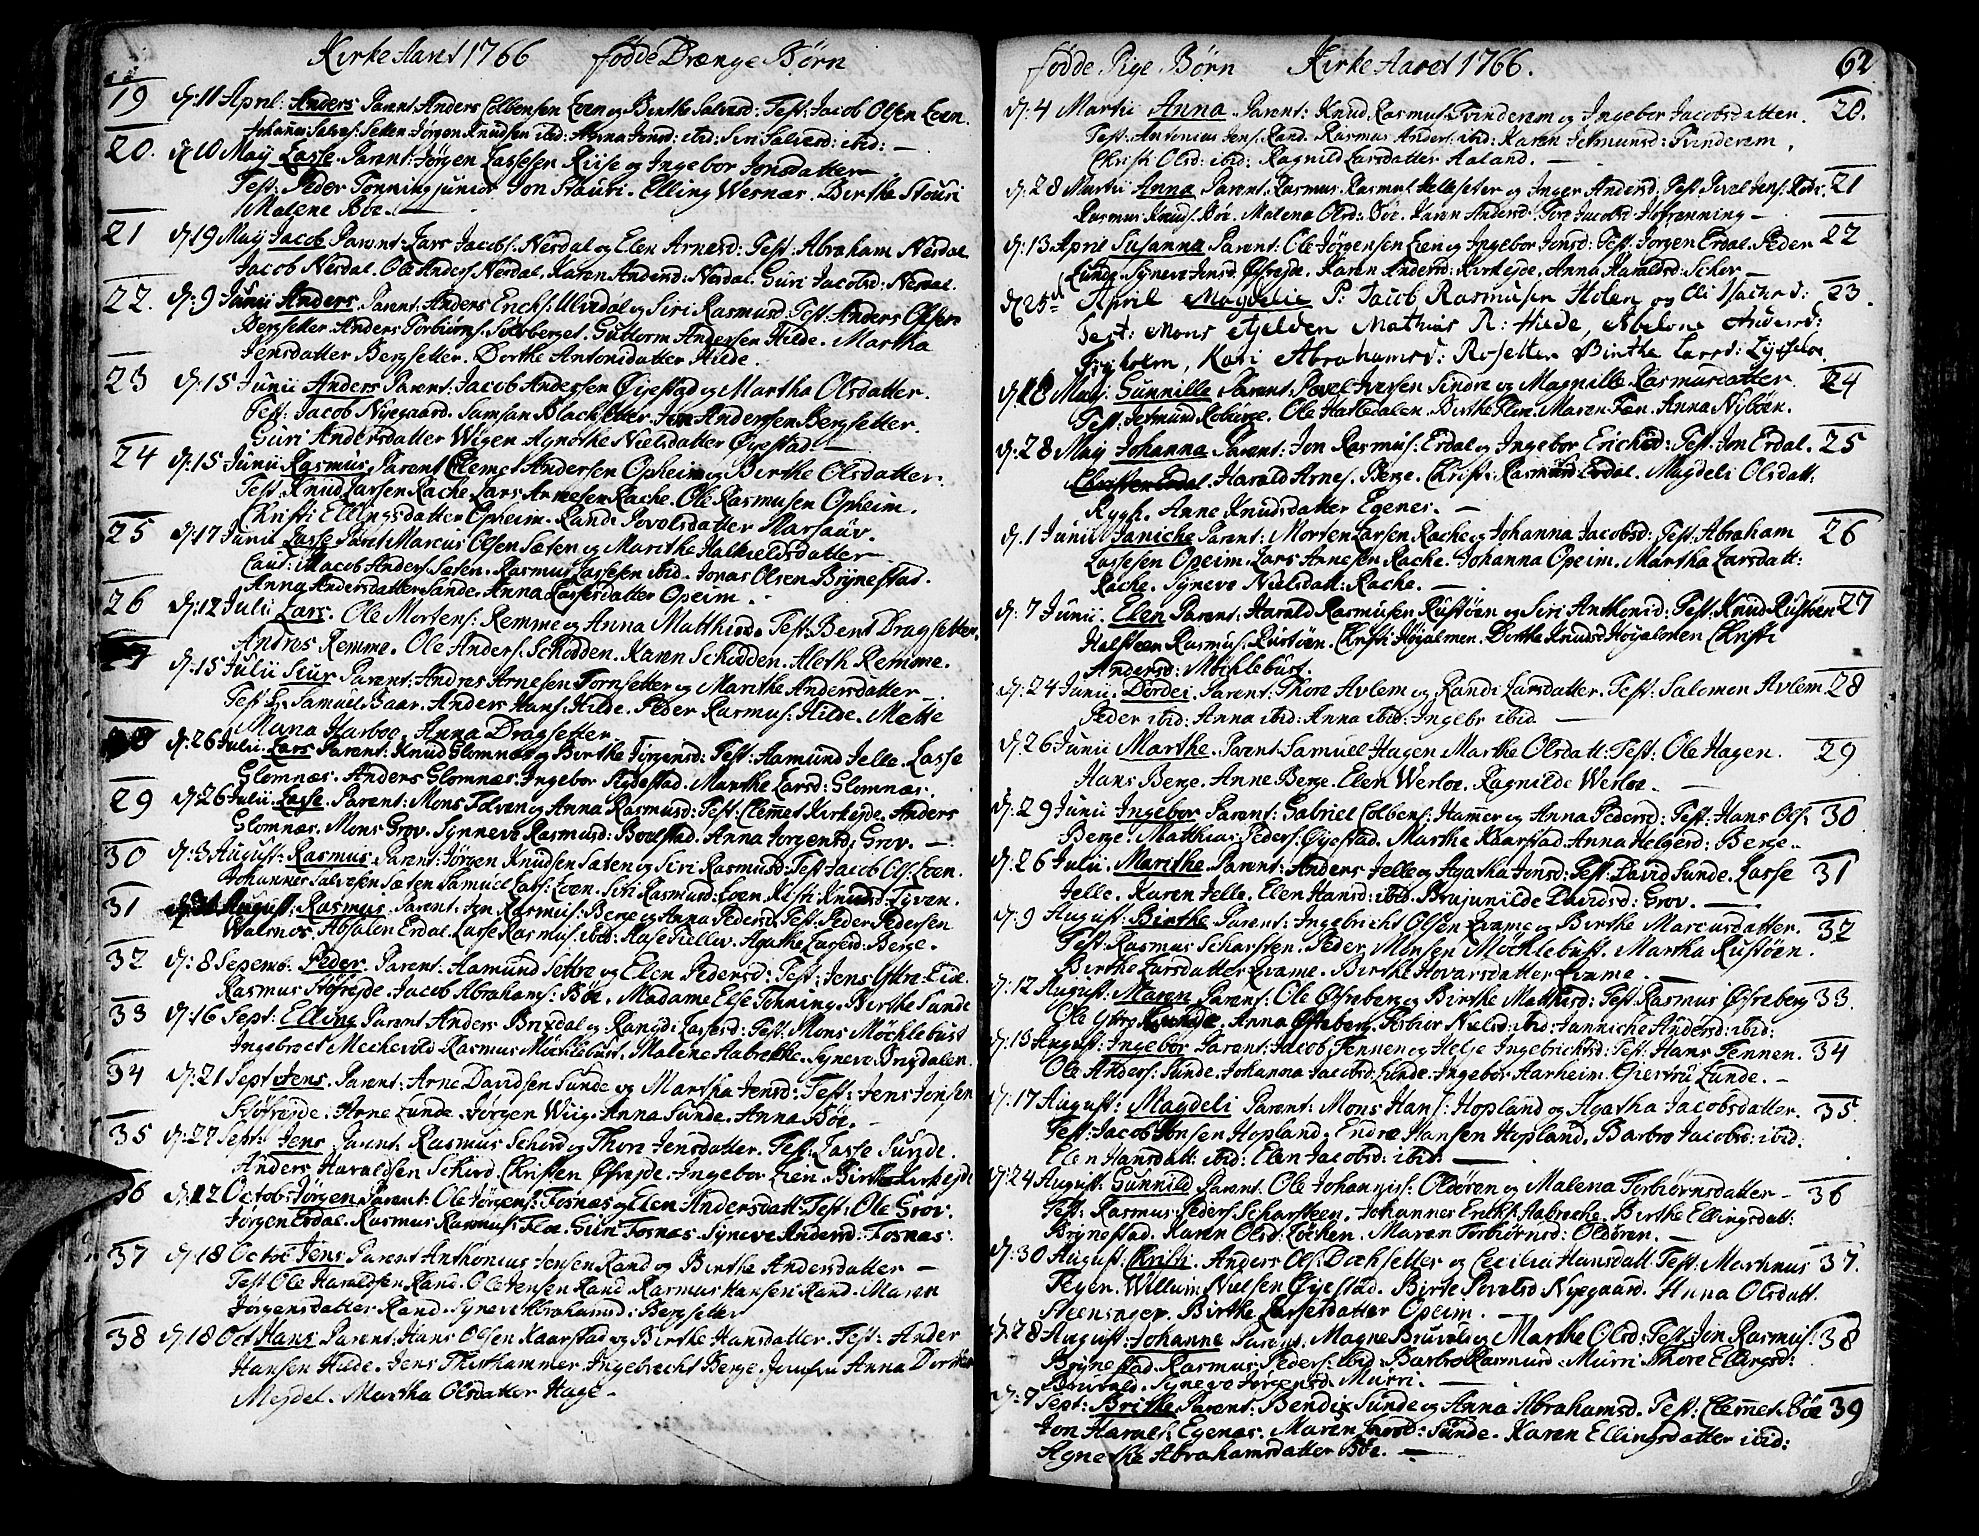 Kirke Aaret 1766 fødde Drænge Børn
19 d: 11 April: Anders Parent: Anders Colbensen Loen og Birthe Salvesd: Test: Jacob Olsen Loen.
Johannes Salves: Setten Jørgen Knudsen ibid: Anna Jonsd: ibid: Siri Salvesd: ibid: —
20. d: 10 May Lasse. Parent: Jørgen Lassesen Riise og Ingebor Jonsdatter
Test: Peder Tønning junior Jon Stauri. Elling Wernæs. Birthe Stouri
Malene Bøe. —
21 d: 19 May Jacob Parent: Lars Jacobs: Nesdal og Elen Arnesd: Test: Abraham Nesdal
Jacob Nesdal. Ole Anders: Nesdal. Karen Andersd: Nesdal. Guri Jacobsd: Nesdal.
22. d: 9 Junii Anders. Parent: Anders Erichs: Ulvedal og Siri Rasmusd: Test: Anders Olsen
Bergsetter Anders Torbiørns: Solsberget. Guttorm Andersen Hilde. Martha
Jensdatter Bergsetter. Dorthe Antonisdatter Hilde.
23 d: 15 Junii Anders Parent: Jacob Andersen Øyestad og Martha Olsdatter.
Test: Jacob Nyegaard. Samson Blachsetter. Jon Andersen Bergsetter.
Guri Andersdatter Wigen Agnethe Nielsdatter Øyestad. —
24 d: 15 Junii Rasmus Parent Clemet Andersen Opheim og Birthe Olsdatter.
Test. Knud Larsen Rache Lars Arnesen Rache. Ole Rasmusen Opheim.
Christi Ellingsdatter Opheim. Randi Povelsdatter Marsaav.
25 d: 17 Junii Lasse Parent Marcus Olsen Sæten og Marithe Halkieldsdatter
Caut: Jacob Anders: Sæten. Rasmus Lassesen ibid. Jonas Olsen Brynestad.
Anna Andersdatter Sande. Anna Lassesdatter Opeim.
26 d: 12 Julii Lars. Ole Mortens: Remme og Anna Matthisd. Test. Bent Dragsetter.
Andres Remme. Ole Anders: Schidden. Karen Schidden. Aleth Remme.
d: 15 Julii Siur Parent: Andres Arnesen Tornsetter og Marithe Andersdatter —
Test Hr. Samuel Baar. Anders Hans: Hilde. Peder Rasmus: Hilde. Mette
Maria Harboe. Anna Dragsetter.
d: 26 Julii. Lars Parent: Knud Glomnæs og Birthe Jørgensd: Test: Aamund Jelle. Lasse
Glomnæs. Anders Glomnæs. Ingebor Flydestad. Marthe Larsd: Glomnæs.
29 d: 26 Julii Lasse. Parent: Mons Tolven og Anna Rasmusd: Test: Clemet Kirkeyde. Anders
Glomnæs. Mons Grov. Synneve Rasmusd: Boelstad. Anna Jorgensd: Grov. —
30 d: 3 August: Rasmus. Parent: Jørgen Knudsen Sæten og Siri Rasmusd: Test Jacob Ols: Loen.
Johannes Salvesen Sæten Samuel Lass: Loen. Siri Rasmusd: Loen. Kristi Knudsd: Tyven.
31 August: Rasmus. Parent. Jon Rasmus: Berge og Anna Pedersd. Test: Peder Pedersen
Walsnes Absalon Erdal. Lasse Rasmus: ibid: Aase Tieller. Agathe Lassesd: Berge.
32 d: 8 Septemb. Peder. Parent: Aamund Settre og Elen Pedersd: Test: Jens Yttre Eide
Rasmus Støfreyde. Jacob Abrahams: Bøe. Madame Else Tønning. Birthe Sunde
33 d: 16 Sept: Elling Parent Anders Brixdal og Rangdi Lassesd: Test: Mons Möchlebust
Ingebroet Mechevold Rasmus Möchlebust. Malene Aabrekke. Syneve Brigdalen.
34 d: 21 Sept Jens. Parent: Arne Davidsen Sunde og Martha Jensd: Test: Jens Jonsen
Støfreyde. Arne Lunde. Jørgen Wiig. Anna Sunde. Anna Bøe. —
35 d: 27 Sept: Jens Parent. Rasmus Schord og Thore Jensdatter. Test: Lasse Sunde.
Anders Haraldsen Schord Christen Øfreyde. Ingebor Lien. Birthe Kirkeyde
36 d: 12 Octob: Jørgen Parent: Ole Jørgens: Fosnæs og Elen Andersdatt: Test: Ole Grov.
Jørgen Erdal. Rasmus Rasmus: Floe. Guri Fosnæs. Syneve Andersd: Fosnæs.
37 d: 18 Octob Jens Parent Anthonius Jensen Rand og Birthe Andersdatter —
Test Ole Haraldsen Rand. Ole Jensen Rand. Rasmus Hansen Rand. Maren
Jørgensdatter Rand. Syneve Abrahamsd: Bergsetter
38 d: 18 Oct Hans Parent: Hans Olsen Kaarstad og Birthe Hansdatter. Test: Ander
Hansen Hilde. Jens Thisthammer. Ingebrecht Berge. Jomfru Anna Dorthea
Meydel. Martha Olsdatter Hage —
fødde Pige Børn Kirke Aaret 1766. 62
d: 4 Martii Anna. Parent: Knud Rasmus: Tvinderem og Ingebor Jacobsdatter. 20.
Test: Antonius Jens: Rand. Rasmus Anders: ibid: Karen Jetmundsd: Tvinderem.
Christi Olsd: ibid: Ragnild Larsdatter Aaland. —
d: 28 Martii Anna Parent: Rasmus Rasmus: Helleseter og Inger Andersd: Test Povel Jens: Rode 21
Rasmus Knuds: Bøe. Malena Olsd: Bøe. Karen Andersd: Tore Jacobsd: Hofrønning —
d: 13 April Susanna Parent: Ole Jørgensen Lien og Ingebor Jonsd: Test: Jørgen Erdal. Peder 22
Lunde. Syneve Jensd. Øfreyde. Karen Andersd: Kirkeyde. Anna Haraldsd: Schor —
d 25 April Magdelie P: Jacob Rasmusen Holen og Oli Isachsd: 23.
Test: Mons Fjelden Mathias R: Hilde, Abelone Andersd:
Kari Abrahamsd: Rosetter Birthe Larsd:
d: 18 May. Gunnille Parent. Povel Iversen Sindre og Magnille Rasmusdatter. 24
Test: Jetmund Roberge. Ole Hattedalen. Birthe Flor. Maren Fær. Anna Nyböen.
d: 28 May Johanna Parent: Jon Rasmus: Erdal og Ingebor Erichsd: Test: Jon Erdal. 25
Christen Erdal. Harald Arnes. Berge. Christi: Rasmusd: Erdal. Magdeli Olsdatt:
Rygh. Anne Knudsdatter Egenes. —
d: 1 Junii Janiche Parent: Morten Larsen Rache og Johanna Jacobsd: Test: Abraham 26
Lassesen Opeim. Lars Arnesen Rache. Johanna Opeim. Martha Larsdatt:
Rache. Syneve Nielsdatt: Rache. —
d: 7 Junii. Elen Parent: Harald Rasmusen Rustøen og Siri Anthonisd: Test: Knud Rustøen 27
Halsteen Rasmus: Rustöen. Christi Höyalmen. Dirthe Knudsd Höyalmen Christi
Andersd: Möchlebust.
d: 24 Junii. Dordei. Parent: Thore Avlem og Randi Larsdatter. Test: Salomon Avlem 28
Peder ibid: Anna ibid: Anna ibid: Ingebr ibid —
d: 26 Junii Marthe. Parent: Samuel Hagen Marthe Olsdatt: Test: Ole Hagen. 29
Hans Berge. Anne Berge. Elen Werloe. Ragnilde Werloe. —
d: 29 Junii Ingebor Parent: Gabriel Colbens: Hammer og Anna Pedersd: Test: Hans Ols: 30
Berge. Matthias Peders: Øyestad. Marthe Kaarstad. Anna Helgesd: Berge.
d: 26 Julii. Marithe. Parent: Anders Jelle og Agatha Jonsd: Test: David Sunde. Lasse 31
Jelle. Karen Jelle. Elen Hansd: ibid. Brujunilde Davidsd: Grov. —
d: 9 August: Birthe Parent: Ingebricht Olsen Qvame og Birthe Marcusdatter. 32
Test: Rasmus Scharsten. Peder Monsen Möchlebust. Martha Rustøen.
Birthe Larsdatter Qvame. Birthe Hovarsdatter Qvame. —
d: 12 August: Maren Parent: Ole Øfreberg og Birthe Matthisd: Test Rasmus Øfreberg 33.
Ole Yttre. Anna Øfreberg. Nielsd: ibid: Jannicke Andersd: ibid:
d: 13 August: Ingebor Parent: Jacob Tennen og Helje Ingebrichtsd: Test: Hans Tennen. 34
Ole Anders: Sunde. Johanna Jacobsd: Lunde. Ingebor Aarheim. Giertru Lunde. —
d: 17 August: Magdeli Parent: Mons Hans: Hopland og Agatha Jacobsdatter. 35.
Test: Jacob Jonsen Hopland. Endre Hansen Hopland. Barbro Jacobsd: ibid.
Elen Hansdatt: ibid: Elen Jacobsd: ibid: —
d: 24 August: Gunnild Parent: Ole Johannis: Oldøren og Malena Torbiørnsdatter — 36
Test: Rasmus Peders: Scharsteen. Johannes Erichs: Aabreche. Birthe Ellingsdatt:
Brynestad. Karen Olsd: Løchen. Maren Torbiørnsd: Oldøren. —
d: 30 August: Christi. Anders Ols: Dachsetter og Cecilia Hansdatt: Test: Martinus 37.
Teyen. Willum Nielsen Øyestad. Birte Povelsd Nyegaard. Anna Olsdatt.
Steensager. Birthe Lassesdatter Opeim. —
d: 28 August: Johanne Parent: Magne Bruvold og Marthe Olsd: Test: Jon Rasmus: 38
Brynestad Rasmus Peders: ibid. Barbro Rasmusd: Murri Thore Ellingsd:
Bruvold. Syneve Jørgensd. Murri. —
d: 7 Sept: Brithe Parent: Bendix Sunde og Anna Abrahamsd. Test: Clemet Bøe 39
Jon Harals: Egenæs. Maren Larsd: Sunde. Karen Ellingsdatter ibid:
Agnethe Abrahamsdatter Bøe. —